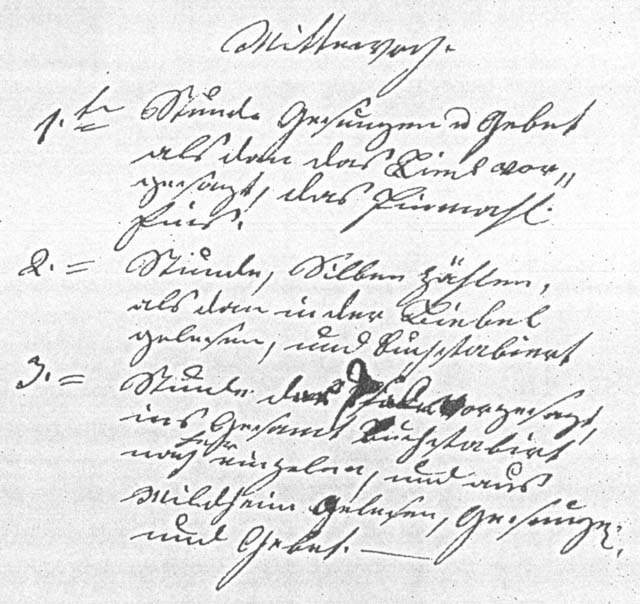 Mittewoch.
1.te Stunde Gesungen u Gebet
als dan das Lied vor„
gesagt, das Einmahl
Eins.
2. = Stunde, Silben zählen,
als dan in der Biebel
gelesen, und buchstabiert
3. = Stunde das vorgesagt,
ins Gesamt buchstabirt
nacher einzelen, und aus
Mildheim gelesen, Gesänge,
und Gebet. —